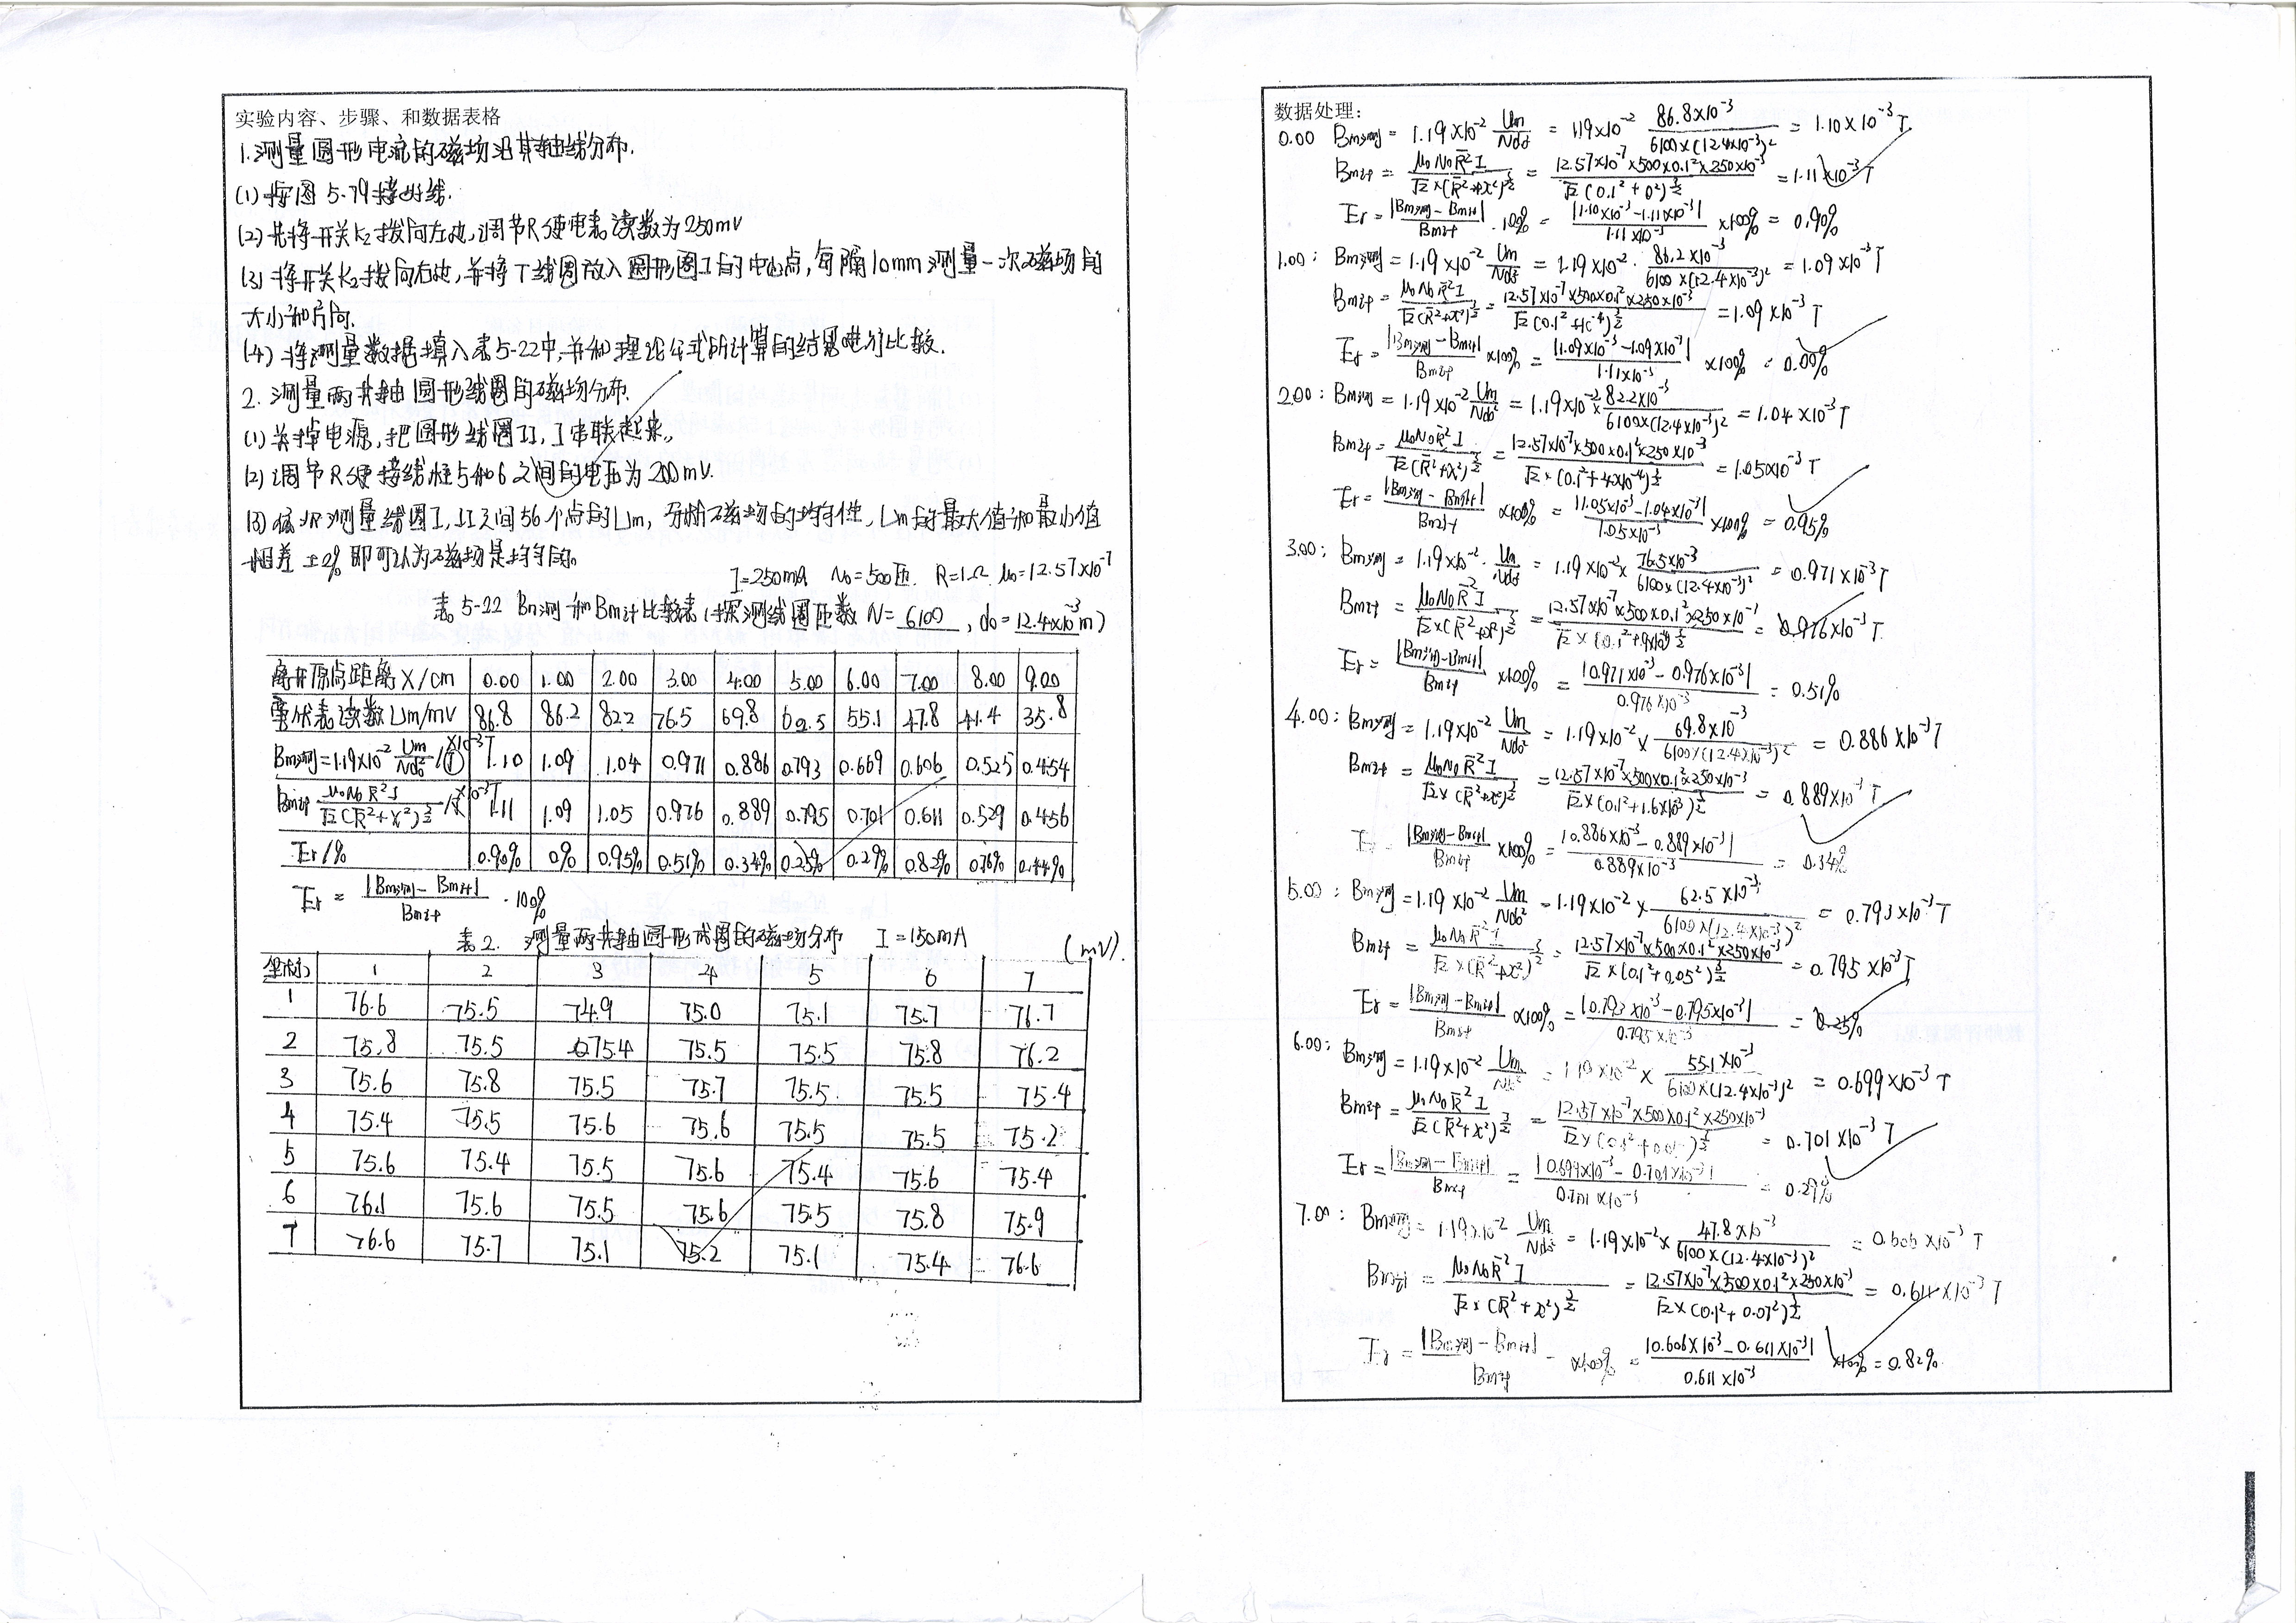 实验内容、步骤、和数据表格
1.测量圆形电流的磁场沿其轴线分布.
(1)按图5-79接好线.
(2)先将开关K₂拨向左边,调节R使电表读数为250mV
(3)将开关K₂拨向右边,并将T线圈放入圆形圈I的中心点,每隔10mm测量一次磁场的
大小和方向.
(4)将测量数据填入表5-22中,并和理论公式所计算的结果进行比较.
2.测量两共轴圆形线圈的磁场分布.
(1)关掉电源,把圆形线圈II,I串联起来。
(2)调节R使接线柱5和6之间的电压为200mV.
(3)依次测量线圈I,II之间56个点的Um,分析磁场的均匀性,Um的最大值和最小值
相差±2%即可认为磁场是均匀的。
I=250mA N₀=500匝 R=1Ω μ₀=12.57×10⁻⁷
表5-22 Bm测和Bm计比较表(探测线圈匝数N=6100,d₀=12.4×10⁻³m)
离开原点距离X/cm 0.00 1.00 2.00 3.00 4.00 5.00 6.00 7.00 8.00 9.00
毫伏表读数Um/mV 86.8 86.2 82.2 76.5 69.8 62.5 55.1 47.8 41.4 35.8
Bm测=1.19×10⁻² Um/Nd₀² /(×10⁻³T) 1.10 1.09 1.04 0.971 0.886 0.793 0.669 0.606 0.525 0.454
Bm计 μ₀N₀R̄²I/√2(R̄²+X²)^(3/2) /×10⁻³T 1.11 1.09 1.05 0.976 0.889 0.795 0.701 0.611 0.529 0.456
Er/% 0.90% 0% 0.95% 0.51% 0.34% 0.25% 0.29% 0.82% 0.76% 0.44%
Er = |Bm测-Bm计|/Bm计 ·100%
表2. 测量两共轴圆形线圈的磁场分布 I=150mA (mV).
坐标 1 2 3 4 5 6 7
1 76.6 75.5 74.9 75.0 75.1 75.7 76.7
2 75.8 75.5 75.4 75.5 75.5 75.8 76.2
3 75.6 75.8 75.5 75.7 75.5 75.5 75.4
4 75.4 75.5 75.6 75.6 75.5 75.5 75.2
5 75.6 75.4 75.5 75.6 75.4 75.6 75.4
6 76.1 75.6 75.5 75.6 75.5 75.8 75.9
7 76.6 75.7 75.1 75.2 75.1 75.4 76.6
数据处理:
0.00 Bm测=1.19×10⁻² Um/Nd₀² = 1.19×10⁻² 86.8×10⁻³/6100×(12.4×10⁻³)² = 1.10×10⁻³T
Bm计= μ₀N₀R̄²I/√2×(R̄²+x²)^(3/2) = 12.57×10⁻⁷×500×0.1²×250×10⁻³/√2(0.1²+0²)^(3/2) =1.11×10⁻³T
Er=|Bm测-Bm计|/Bm计 ·100% = |1.10×10⁻³-1.11×10⁻³|/1.11×10⁻³ ×100% = 0.90%
1.00: Bm测=1.19×10⁻² Um/Nd₀² = 1.19×10⁻²· 86.2×10⁻³/6100×(12.4×10⁻³)² = 1.09×10⁻³T
Bm计= μ₀N₀R̄²I/√2(R̄²+x²)^(3/2) = 12.57×10⁻⁷×500×0.1²×250×10⁻³/√2(0.1²+10⁻⁴)^(3/2) =1.09×10⁻³T
Er=|Bm测-Bm计|/Bm计 ×100% = |1.09×10⁻³-1.09×10⁻³|/1.11×10⁻³ ×100% = 0.00%
2.00: Bm测=1.19×10⁻² Um/Nd₀² = 1.19×10⁻²× 82.2×10⁻³/6100×(12.4×10⁻³)² = 1.04×10⁻³T
Bm计= μ₀N₀R̄²I/√2(R̄²+x²)^(3/2) = 12.57×10⁻⁷×500×0.1²×250×10⁻³/√2×(0.1²+4×10⁻⁴)^(3/2) = 1.05×10⁻³T
Er=|Bm测-Bm计|/Bm计 ×100% = |1.05×10⁻³-1.04×10⁻³|/1.05×10⁻³ ×100% = 0.95%
3.00: Bm测=1.19×10⁻²· Um/Nd₀² = 1.19×10⁻²× 76.5×10⁻³/6100×(12.4×10⁻³)² = 0.971×10⁻³T
Bm计= μ₀N₀R̄²I/√2×(R̄²+x²)^(3/2) = 12.57×10⁻⁷×500×0.1²×250×10⁻³/√2×(0.1²+9×10⁻⁴)^(3/2) = 0.976×10⁻³T.
Er=|Bm测-Bm计|/Bm计 ×100% = |0.971×10⁻³-0.976×10⁻³|/0.976×10⁻³ = 0.51%
4.00: Bm测=1.19×10⁻² Um/Nd₀² = 1.19×10⁻²× 69.8×10⁻³/6100×(12.4×10⁻³)² = 0.886×10⁻³T
Bm计= μ₀N₀R̄²I/√2×(R̄²+x²)^(3/2) = 12.57×10⁻⁷×500×0.1²×250×10⁻³/√2×(0.1²+1.6×10⁻³)^(3/2) = 0.889×10⁻³T
Er=|Bm测-Bm计|/Bm计 ×100% = |0.886×10⁻³-0.889×10⁻³|/0.889×10⁻³ = 0.34%
5.00: Bm测=1.19×10⁻² Um/Nd₀² = 1.19×10⁻²× 62.5×10⁻³/6100×(12.4×10⁻³)² = 0.793×10⁻³T
Bm计= μ₀N₀R̄²I/√2×(R̄²+x²)^(3/2) = 12.57×10⁻⁷×500×0.1²×250×10⁻³/√2×(0.1²+0.05²)^(3/2) = 0.795×10⁻³T
Er=|Bm测-Bm计|/Bm计 ×100% = |0.793×10⁻³-0.795×10⁻³|/0.795×10⁻³ = 0.25%
6.00: Bm测=1.19×10⁻² Um/Nd₀² = 1.19×10⁻²× 55.1×10⁻³/6100×(12.4×10⁻³)² = 0.699×10⁻³T
Bm计= μ₀N₀R̄²I/√2(R̄²+x²)^(3/2) = 12.57×10⁻⁷×500×0.1²×250×10⁻³ = 0.701×10⁻³T
Er=|Bm测-Bm计|/Bm计 = |0.699×10⁻³-0.701×10⁻³|/0.701×10⁻³ = 0.29%
7.00: Bm测=1.19×10⁻² Um/Nd₀² = 1.19×10⁻²× 47.8×10⁻³/6100×(12.4×10⁻³)² = 0.606×10⁻³T
Bm计= μ₀N₀R̄²I/√2×(R̄²+x²)^(3/2) = 12.57×10⁻⁷×500×0.1²×250×10⁻³/√2×(0.1²+0.07²)^(3/2) = 0.611×10⁻³T
Er=|Bm测-Bm计|/Bm计 ×100% = |0.606×10⁻³-0.611×10⁻³|/0.611×10⁻³ ×100% = 0.82%